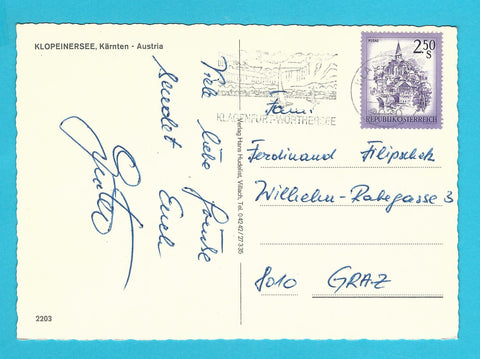 KLOPEINERSEE, Kärnten - Austria
Viele liebe Grüße
sendet Euch
KLAGENFURT-WÖRTHERSEE
MURAU
2.50
S
REPUBLIK ÖSTERREICH
Fami
Ferdinand Filipschek
Wilhelm-Rabegasse 3
8010 GRAZ
Verlag Hans Hudelist, Villach, Tel. 0 42 42 / 27 3 35
2203